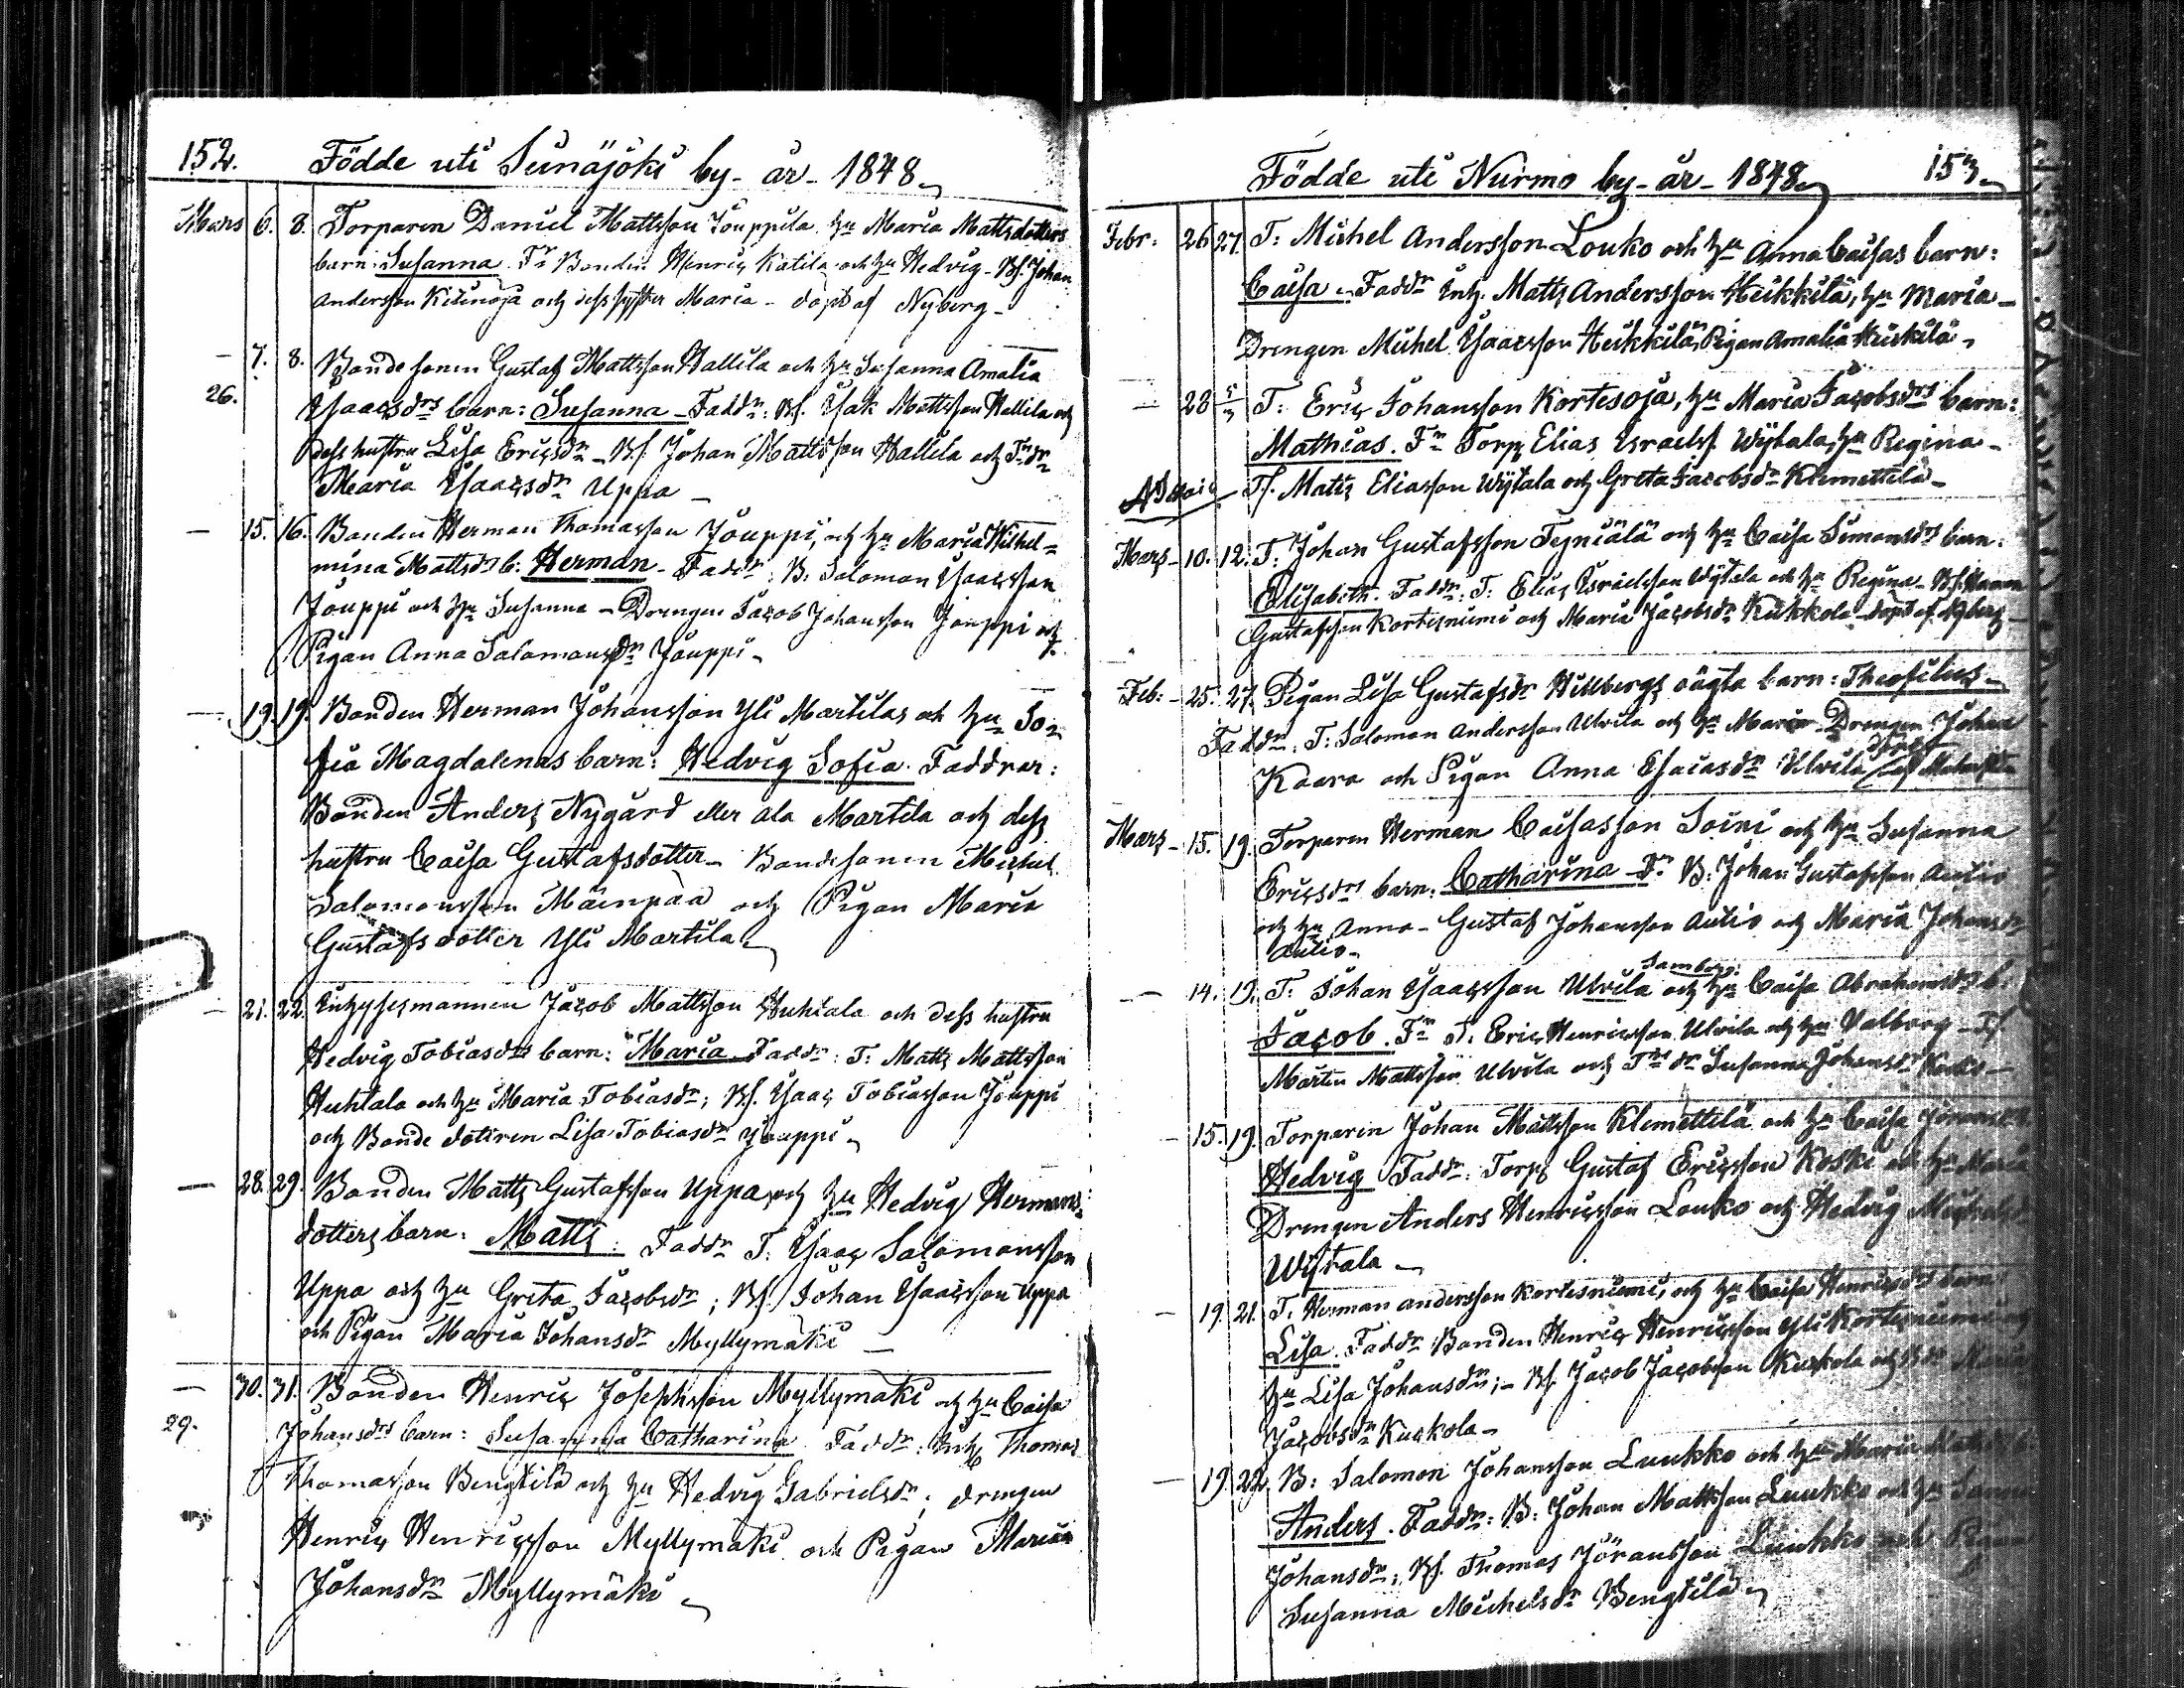 152. Födde uti Seinäjoki by - år - 1848
Mars 6. 8. Torparen Daniel Mattsson Jouppila hu Maria Mattsdotters
barn: Susanna. Fr Bonden Henric Katila och hu Hedvig - Bs. Johan
Andersson Kiikinoja och dess syster Maria - döpt af Nyberg -
- 7. 8. Bondesonen Gustaf Mattsson Hallila och hu Susanna Amalia
26. Isaacsdrs barn: Susanna - Faddr: Bs. Isak Mattsson Hallila och
dess hustru Lisa Ericsdr - Bs. Johan Mattsson Hallila och
Maria Isaacsdr Uppa -
- 15. 16. Bonden Herman Thomasson Jouppi, och hu Maria Wilhel=
mina Mattsdrs b: Herman - Faddr: B: Salomon Isaacsson
Jouppi och hu Susanna - Drengen Jacob Johansson Jouppi och
Pigan Anna Salomonsdr Jouppi -
- 19. 19. Bonden Herman Johansson Yli Martilas och hu So=
fia Magdalenas barn: Hedvig Sofia. Faddrar:
Bonden Anders Nygård eller ala Martila och dess
hustru Caisa Gustafsdotter - Bondesonen Michel
Salomonsson Mäinpää och Pigan Maria
Gustafsdotter Yli Martila
- 21. 22. Inhysesmannen Jacob Mattsson Huhtala och dess hustru
Hedvig Tobiasdrs barn: Maria Faddr: T: Matts Mattsson
Huhtala och hu Maria Tobiasdr; Bs. Isaac Tobiasson Jouppi
och Bonde dottren Lisa Tobiasdr Jouppi
- 28. 29. Bonden Matts Gustafsson Uppa, och hu Hedvig Hermans=
dotters barn: Matts: Faddr T: Isaac Salomonsson
Uppa och hu Greta Jacobsdr; Bs. Johan Isaacsson Uppa
och Pigan Maria Johansdr Myllymäki -
- 30. 31. Bonden Henric Josephsson Myllymäki och hu Caisa
29. Johansdrs barn: Susanna Catharina Faddr: Inh: Thomas
Thomasson Bengtilä och hu Hedvig Gabrielsdr; drengen
Henric Henricsson Myllymäki och Pigan Maria
Johansdr Myllymäki
Födde uti Nurmo by - år - 1848 153
Febr: 26 27. T: Michel Andersson Louko och hu Anna Caisas barn:
Caisa - Faddr Inh. Matts Andersson Heikkilä, hu Maria -
Drengen Michel Isaacsson Heikkilä, Pigan Amalia Heikkilä -
- 28 5/3 T: Eric Johansson Kortesoja, hu Maria Jacobsdrs barn:
Mathias. Fr Torp Elias Israelss. Wiitala, hu Regina -
Ts. Matts Eliasson Wiitala och Greta Jacobsdr Klemettilä -
Mars - 10. 12. T. Johan Gustafsson och hu Caisa Simonsdrs barn:
Elisabeth. Faddr: T: Elias Israelsson Wiitala och hu Regina -
Gustafsson Kortesniemi och Maria Jacobsdr Kuckola - döpt af Nyberg
Feb: - 25. 27. Pigan Lisa Gustafsdr Hillbergs oägta barn: Theofilus
Faddr: T: Salomon Andersson Ulvila och hu Maria - Drengen Johan
Kaara och Pigan Anna Esaiasdr Ulvila döpt af
Mars - 15. 19. Torparen Herman Caisasson Soini och hu Susanna
Ericsdrs barn: Catharina - Fr. B: Johan Gustafsson Autio
och hu Anna - Gustaf Johansson Autio och Maria Johansdr
Autio -
- 14. 19. T: Johan Isaacsson Ulvila och hu Caisa Abrahamsdrs b:
Jacob. Fr T. Eric Henricsson Ulvila och hu Valborg - Ts.
Martin Mattsson Ulvila och Susanna Johansdr
- 15. 19. Torparen Johan Mattsson Klemettilä och hu Caisa
Hedvig Faddr: Torp Gustaf Ericsson Koski och hu Maria
Drengen Anders Henricsson Louko och Hedvig
Wiitala -
- 19. 21. T. Herman Andersson Kortesniemi, och hu Caisa Henricsdrs barn
Lisa. Faddr: Bonden Henric Henricsson Yli Kortesniemi och
hu Lisa Johansdr; - Bs. Jacob Jacobsson Kuckola och
Jacobsdr Kuckola -
- 19. 22. B: Salomon Johansson Luukko och hu Maria
Anders. Faddr: B: Johan Mattsson Luukko och hu
Johansdr; Bs. Thomas Jöransson Luukko och Pigan
Susanna Michelsdr Bengtilä